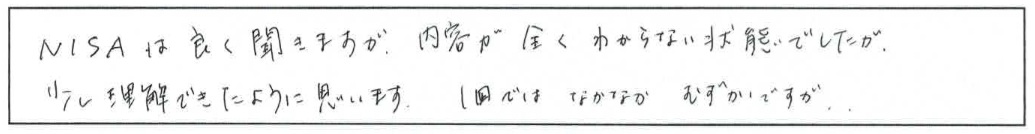 NISAは良く聞きますが、内容が全くわからない状態でしたが、
少し理解できたように思います。 1回ではなかなかむずかいですが..